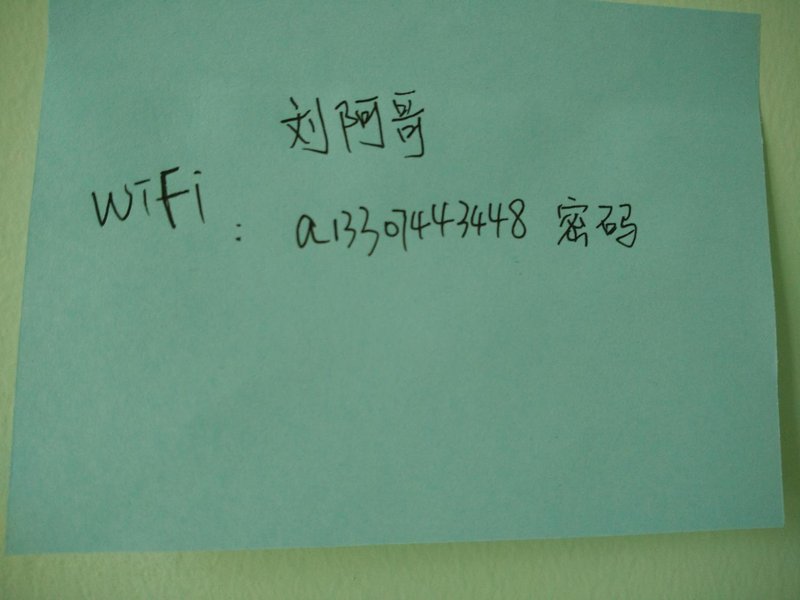 刘阿哥
WiFi : a13307443448 密码